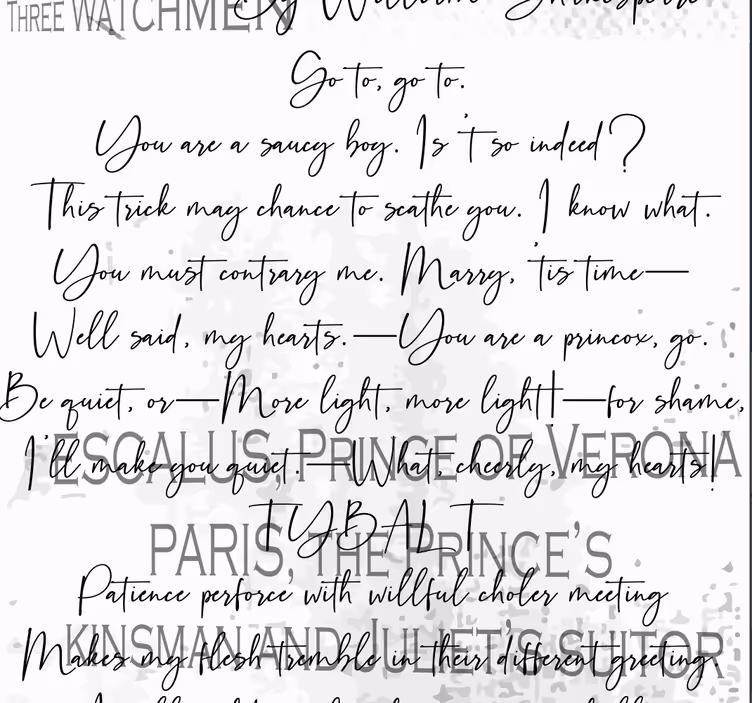 THREE WATCHMEN
By William Shakespeare
Go to, go to.
You are a saucy boy. Is 't so indeed?
This trick may chance to scathe you. I know what.
You must contrary me. Marry, 'tis time—
Well said, my hearts.—You are a princox, go.
Be quiet, or—More light, more light!—for shame,
ESCALUS, PRINCE OF VERONA
I'll make you quiet.—What, cheerly, my hearts!
TYBALT
PARIS, THE PRINCE'S
Patience perforce with willful choler meeting
KINSMAN AND JULIET'S SUITOR
Makes my flesh tremble in their different greeting.